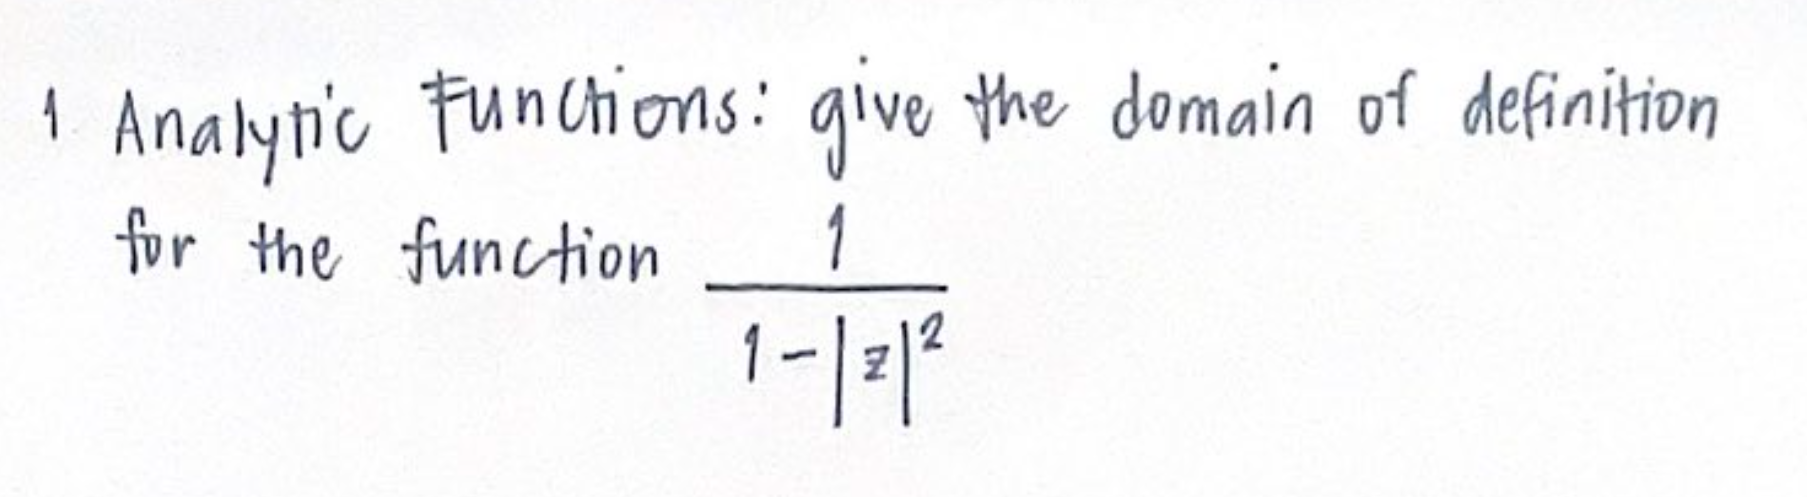 1. Analytic Functions: give the domain of definition
for the function 1 / 1 - |z|²